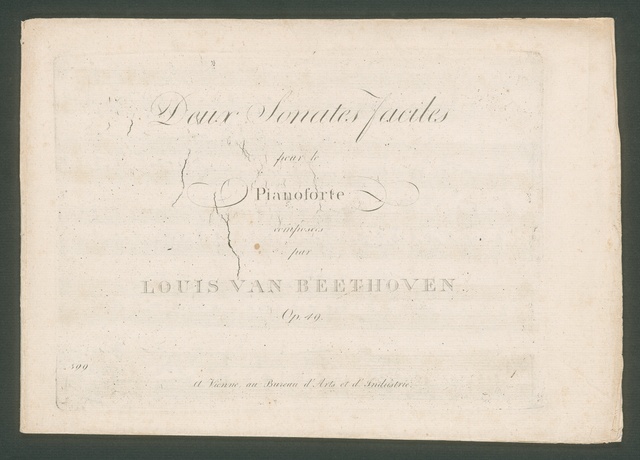 Deux Sonates faciles
pour le
Pianoforte
composées
par
LOUIS VAN BEETHOVEN.
Op. 49.
399
A Vienne, au Bureau d'Arts et d'Industrie.